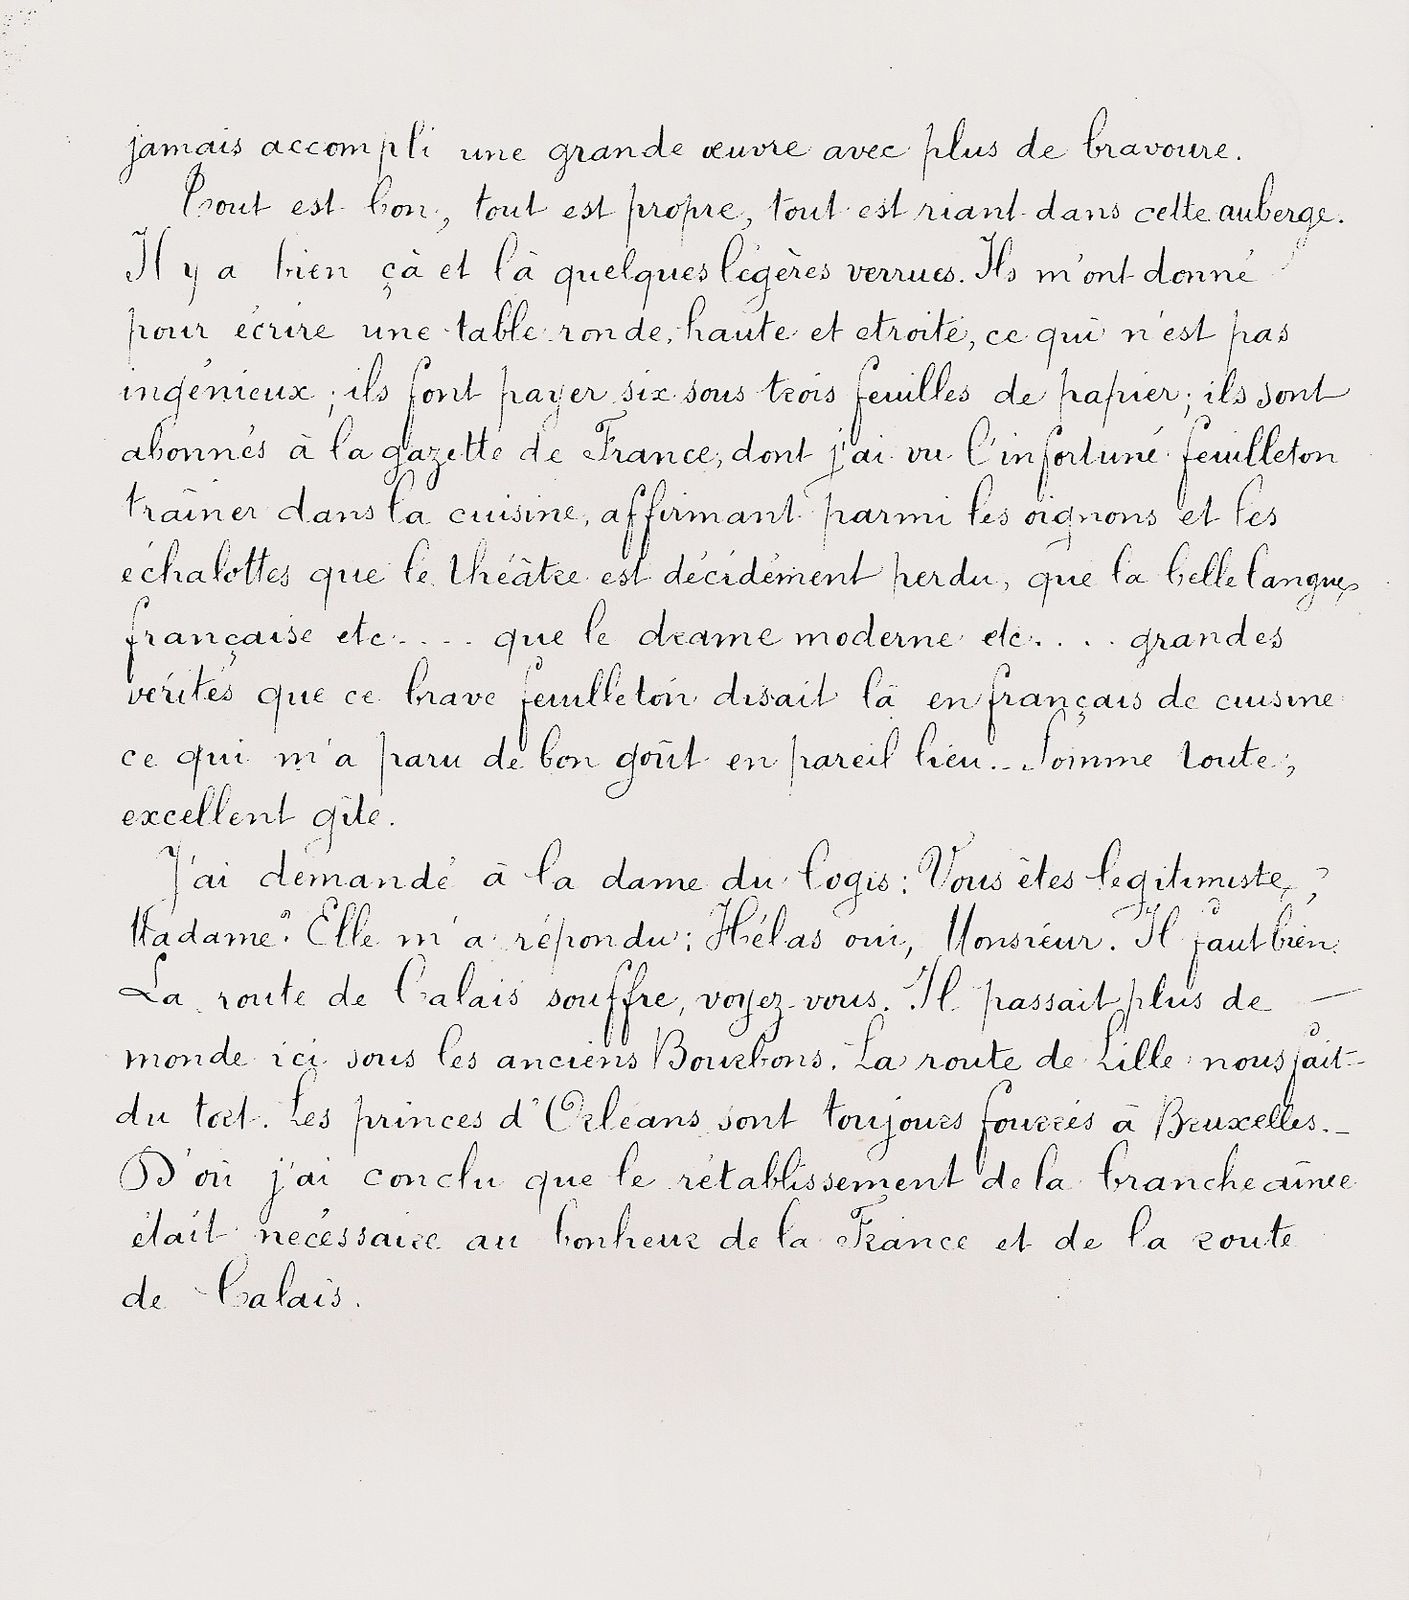 jamais accompli une grande œuvre avec plus de bravoure.
Tout est bon, tout est propre, tout est riant dans cette auberge.
Il y a bien çà et là quelques légères verrues. Ils m'ont donné
pour écrire une table ronde, haute et etroite, ce qui n'est pas
ingénieux ; ils font payer six sous trois feuilles de papier ; ils sont
abonnés à la gazette de France, dont j'ai vu l'infortuné feuilleton
traîner dans la cuisine, affirmant parmi les oignons et les
échalottes que le théâtre est décidément perdu, que la belle langue
française etc.... que le drame moderne etc.... grandes
vérités que ce brave feuilleton disait là en français de cuisine
ce qui m'a paru de bon goût en pareil lieu.. Somme toute,
excellent gîte.
J'ai demandé à la dame du logis : Vous êtes legitimiste, ?
Madame ? Elle m'a répondu : Hélas oui, Monsieur. Il faut bien.
La route de Calais souffre, voyez-vous. Il passait plus de —
monde ici sous les anciens Bourbons. La route de Lille nous fait-
du tort. Les princes d'Orléans sont toujours fourrés à Bruxelles._
D'où j'ai conclu que le rétablissement de la branche aînée
était nécessaire au bonheur de la France et de la route
de Calais.